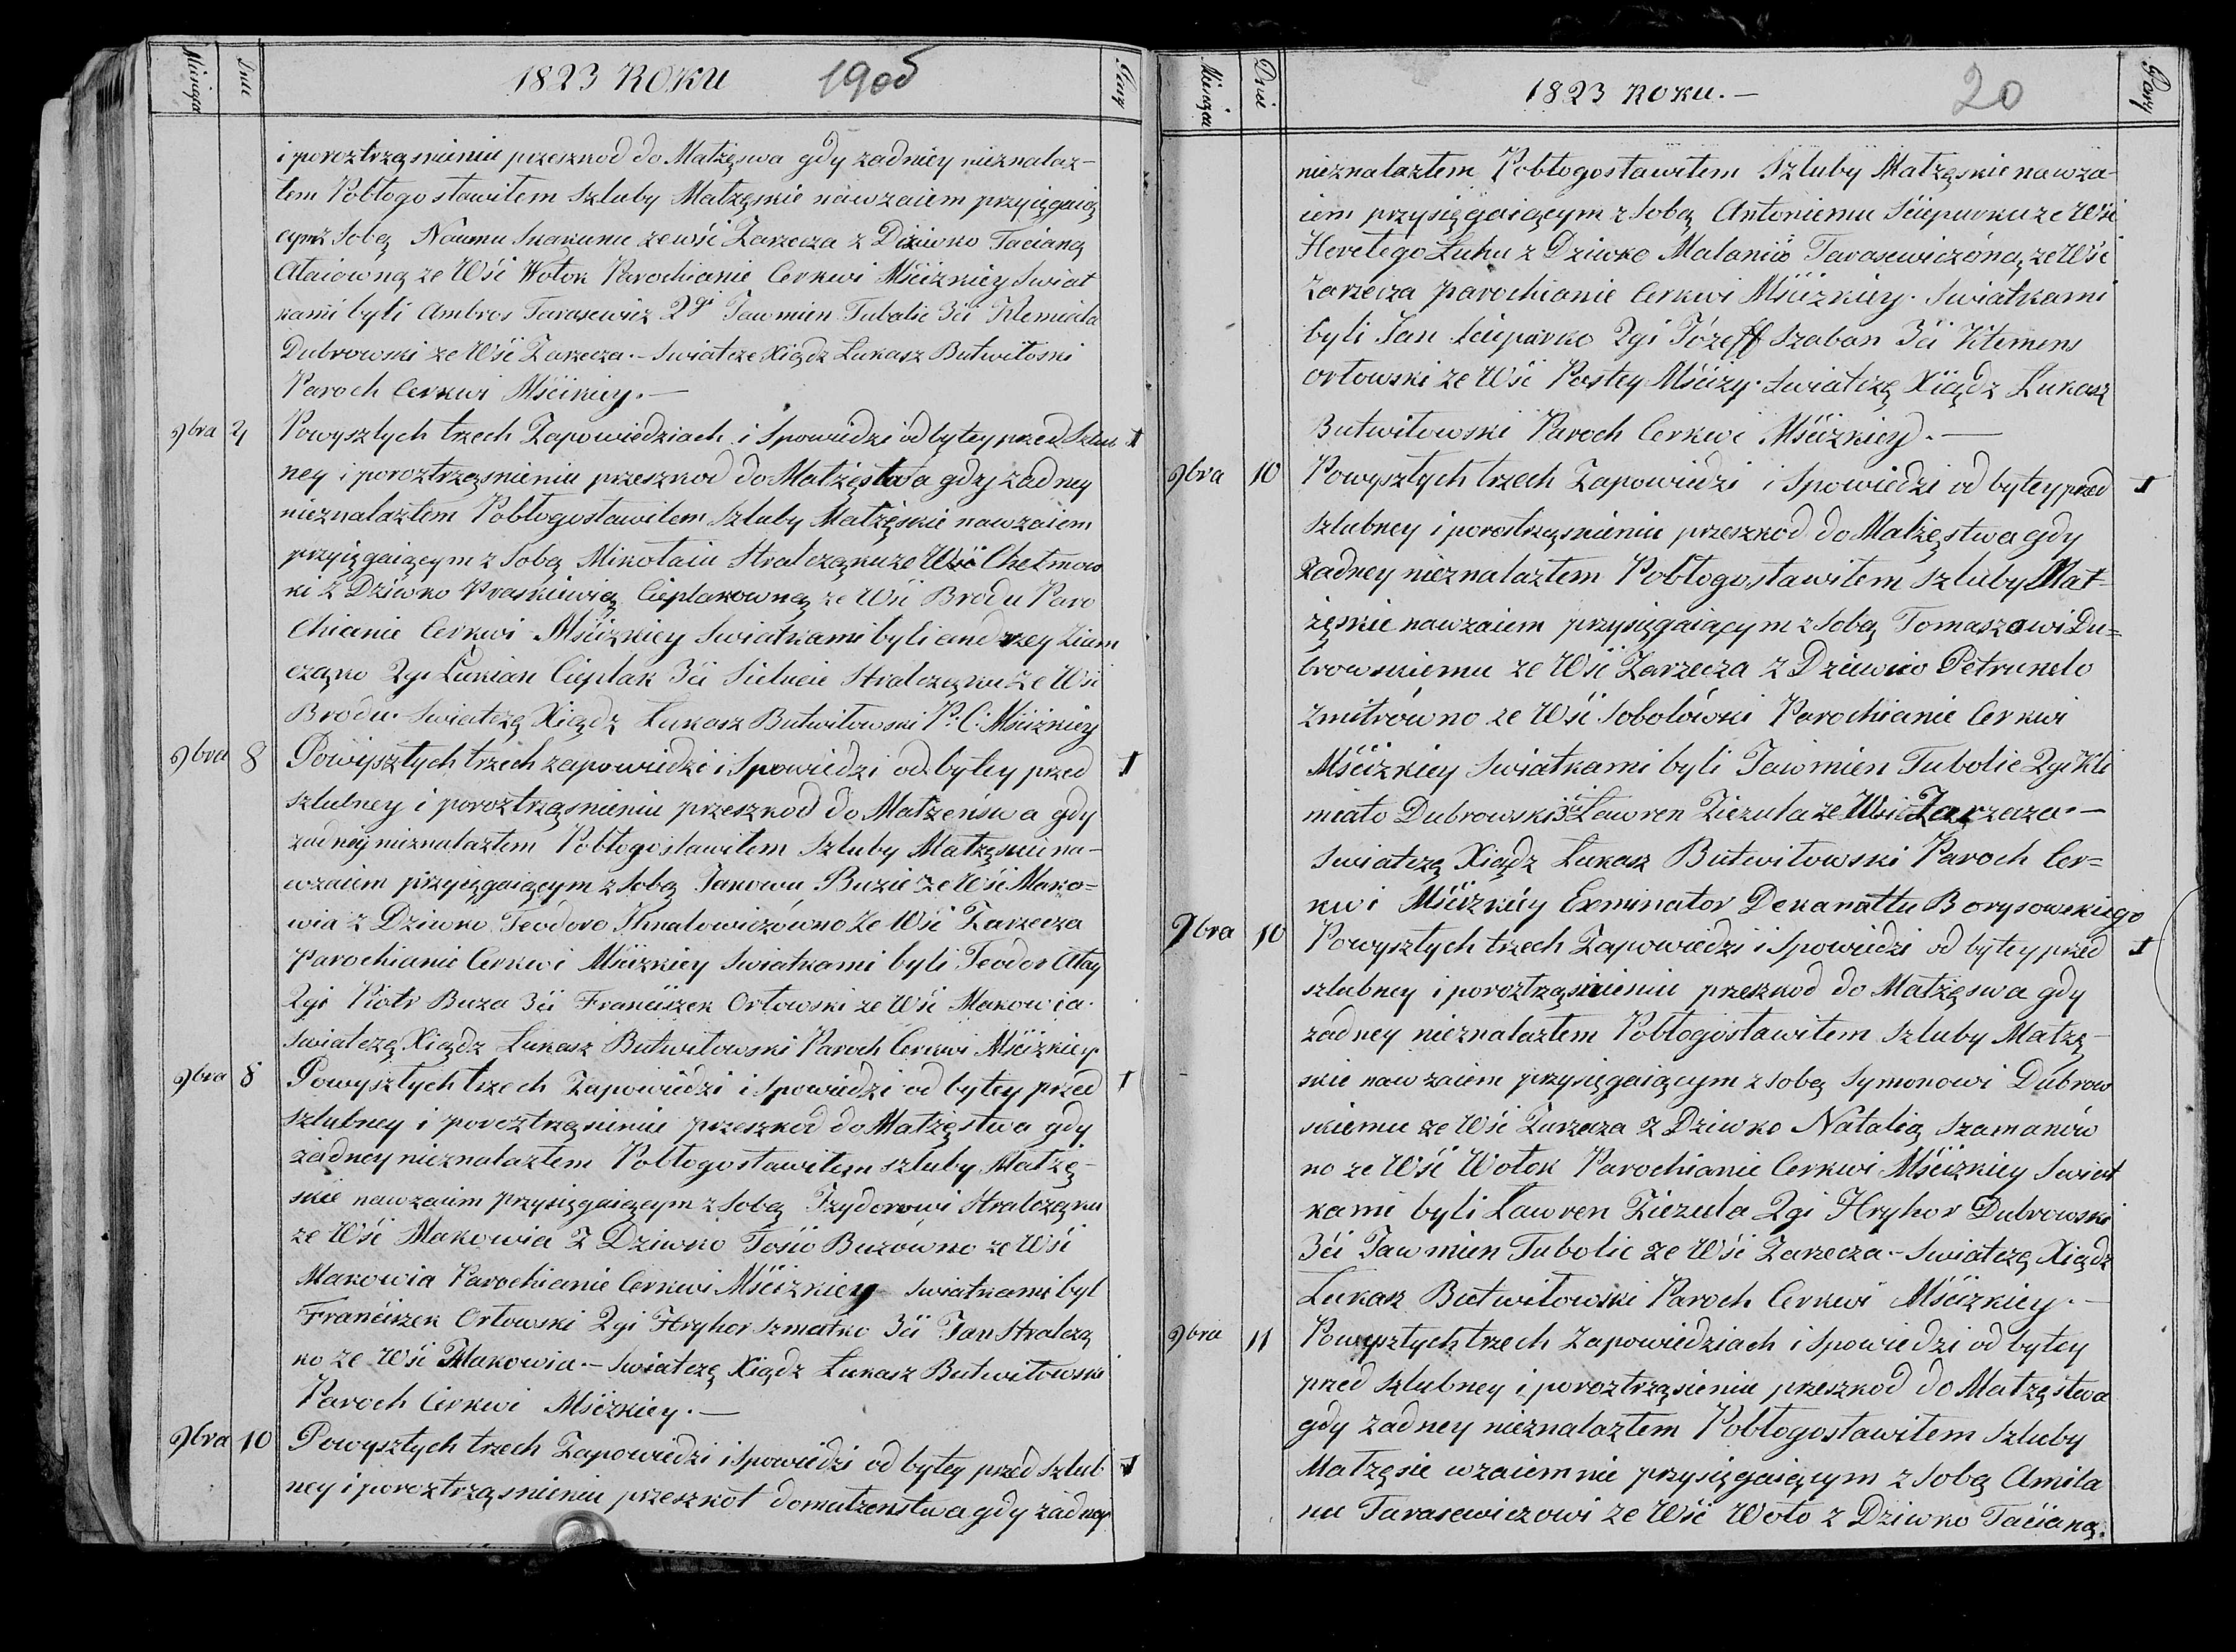 Miesiąca
Dnie
1823 ROKU
19об
Pary
i poroztrząsnieniu przeszkod do Małżęswa gdy zadniey nieznalaz-
łem Pobłogosławiłem szluby Małzęskie nawzaiem przyięgaią
cym z Sobą Naumu Skakunu ze wśi Zarzecza z Dziwko Tacianą
Ataiowną ze Wśi Wołok Parochianie Cerkwi Mśćizkiey Swiat
kami byli Ambros Tarasewicz 2gi Jawmien Tubolic 3ći Klemiata
Dubrowski ze Wśi Zarzecza.- Swiatcze Xiądz Łukasz Butwiłoski
Paroch Cerkwi Mśćizkiey.-
9bra
Powyszłych trzech Zapowiedziach i Spowiedzi odbyłey przed Szlub
1
ney i poroztrząsnieniu przeszkod do Małżęstwa gdy zadney
nieznalazłem Pobłogosławiłem Szluby Małżęskie nawzaiem
przyięgaiącym z Sobą Mikołaiu Stralcząku ze Wśi Chełmow
ki z Dziwko Praskiewią Cieplakowną ze Wśi Brodu Paro
chianie Cerkwi Mśćizkiey Swiatkami byli andrzey Ziem
czązko 2gi Łukian Cieplak 3ći Sielucie Stralczązku ze Wśi
Brodu. Swiatczą Xiądz Łukasz Butwiłowski P. C. Mśćizkiey
9bra
8
Powyszłych trzech zapowiedzi i Spowiedzi odbyłey przed
1
szlubney i poroztrząsnieniu przeszkod do Małżeńswa gdy
zadniey nieznalazłem Pobłogosławiłem Szluby Małzęskie na-
wzaiem przyięgaiącym z Sobą Jakowu Buzie ze Wśi Mako=
wia z Dziwko Teodoro Ihnatowiczówno ze Wśi Zarzecza
Parochianie Cerkwi Mśćizkiey Swiatkami byli Teodor Atay
2gi Piotr Buza 3ći Franćiszek Orłowski ze Wśi Makowia.
Swiatczą Xiądz Łukasz Butwiłowski Paroch Cerkwi Mśćizkiey.
9bra
8
Powyszłych trzech Zapowiedzi i Spowiedzi odbyłey przed
1
szlubney i poroztrząsnieniu przeszkod do Małżęstwa gdy
żadney nieznalazłem Pobłogosławiłem szluby Małżę-
skie nawzaiem przysięgaiącym z Sobą Izydorowi Stralczązku
ze Wśi Makowia z Dziwko Tosio Buzówno ze Wśi
Makowia Parochianie Cerkwi Mśćizkiey Swiatkami był
Franćiszek Orłowski 2gi Hryhor Szmatko 3ći Jan Stralczą
ko ze Wśi Makowia.- Swiatczę Xiądz Łukasz Butwiłowski
Paroch Cerkwi Mśćizkiey.-
9bra
10
Powyszłych trzech Zapowiedzi i Spowiedzi odbyłey przed Szlub
1
ney i poroztrząsnieniu przeszkot do małzenstwa gdy zadney
Miesiąca
Dnie
1823 ROKU.-
20
Pary
nieznalazłem Pobłogosławiłem Szluby Małzęskie nawza-
iem przysięgaiącym z Sobą Antoniemu Sciepurku ze Wśi
Horełego Łuhu z Dziwko Malanijo Tarasewiczóną ze Wśi
Zarzecza parochianie Cerkwi Mśćizkiey. Swiatkami
byli Jan Sciepurko 2gi Józeff Szaban 3ći Klemens
orłowski ze Wśi Postey Mśćizy. Swiatczę Xiądz Łukasz
Butwiłowski Paroch Cerkwi Mśćizkiey.-
9bra
10
Powyszłych trzech Zapowiedzi i Spowiedzi odbyłey przed
1
szlubney i porostrząsnieniu przeszkod do Małżęstwa gdy
zadney nieznalazłem Pobłogosławiłem szluby Mał-
żęskie nawzaiem przysięgaiącym z Sobą Tomaszowi Du=
browskiemu ze Wśi Zarzecza z Dziewko Petrunelo
Zmitrówno ze Wśi Sobolówki Parochianie Cerkwi
Mśćizkiey Swiatkami byli Jawmien Tubolic 2gi Kli
miato Dubrowski 3ći Ławren Ziezula ze Wśi Zarzecza.-
Swiatczą Xiądz Łukasz Butwiłowski Paroch Cer=
kwi Mśćizkiéy Exminator Dekanattu Borysowskiego
9bra
10
Powyszłych trzech Zapowiedzi i Spowiedzi odbyłey przed
1
szlubney i poroztrząsnieniu przeszkod do Małżęswa gdy
zadney nieznalazłem Pobłogosławiłem Szluby Małzę-
skie nawzaiem przysięgaiącym z sobą Symonowi Dubrow
skiemu ze Wśi Zarzecza z Dziwko Natalią Szamanów
no ze Wśi Wołok Parochianie Cerkwi Mśćizkiey Swiat
kami byli Ławren Ziezula 2gi Hryhor Dubrowski
3ći Jawmien Tubolic ze Wśi Zarzecza.- Swiatczę Xiądz
Łukasz Butwiłowski Paroch Cerkwi Mśćizkiey.-
9bra
11
Powyszłych trzech Zapowiedziach i Spowiedzi odbyłey
przed Szlubney i poroztrząsieniu przeszkod do Małzęstwa
gdy zadney nieznalazłem Pobłogosławiłem Szluby
Małzęsie wzaiemnie przysięgaiącym z Sobą Amila
nu Tarasewiczowi ze Wśi Woło z Dziwko Tacianą.